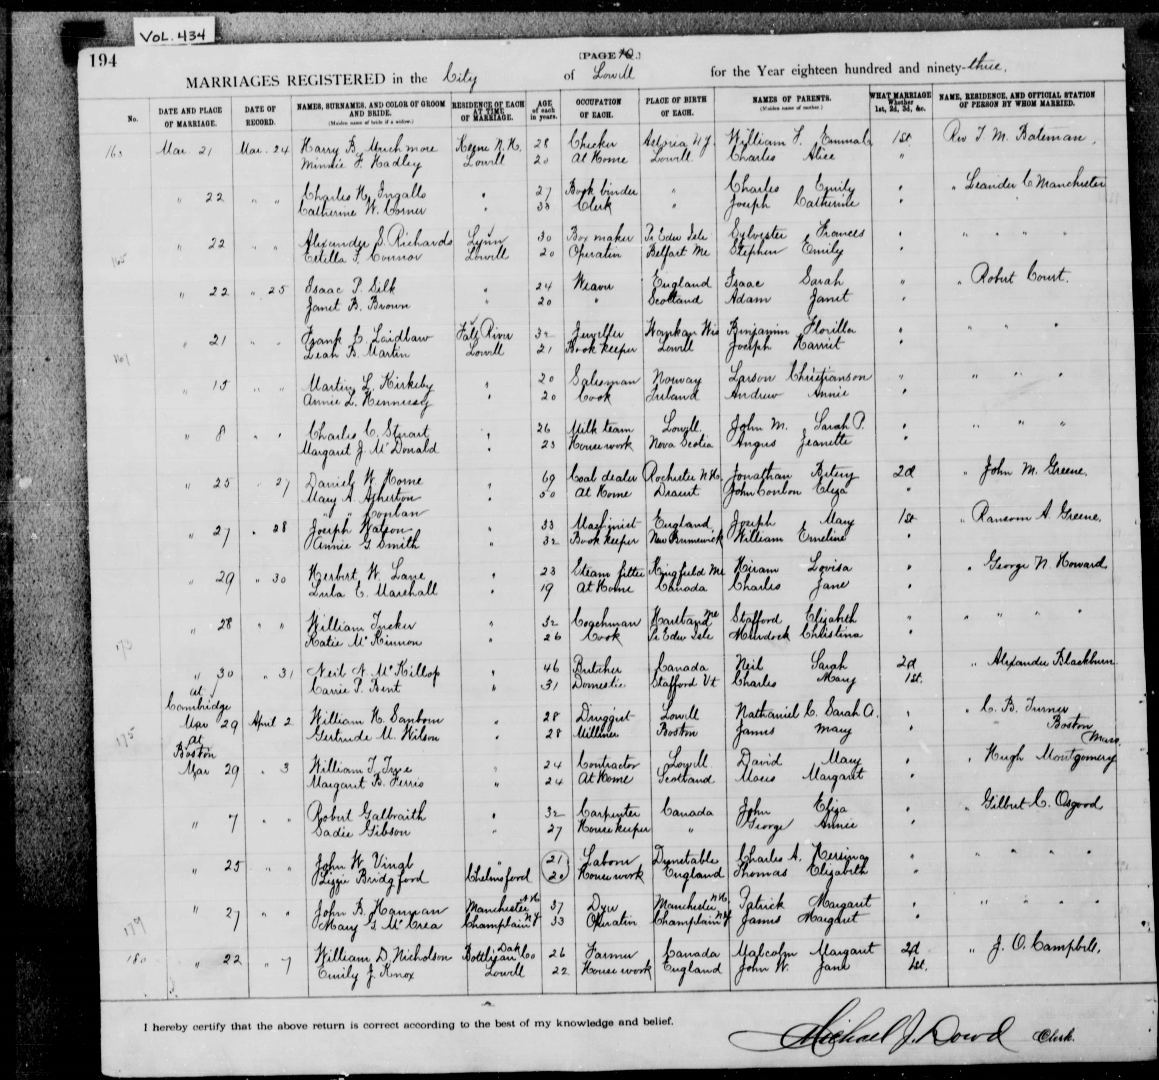 VOL. 434
194
[PAGE 10.]
MARRIAGES REGISTERED in the City of Lowell for the Year eighteen hundred and ninety-three.
No. DATE AND PLACE OF MARRIAGE. DATE OF RECORD. NAMES, SURNAMES, AND COLOR OF GROOM AND BRIDE. (Maiden name of bride if a widow.) RESIDENCE OF EACH AT TIME OF MARRIAGE. AGE of each in years. OCCUPATION OF EACH. PLACE OF BIRTH OF EACH. NAMES OF PARENTS. (Maiden name of mother.) WHAT MARRIAGE Whether 1st, 2d, 3d, &c. NAME, RESIDENCE, AND OFFICIAL STATION OF PERSON BY WHOM MARRIED.
Mar 21 Mar. 24 Harry B. Muchmore Keene N.H. 28 Checker N.J. William F. Emma 1st Rev F. M. Bateman.
Minnie F. Hadley Lowell 20 At Home Lowell Charles Alice "
" 22 " " Charles H. Ingalls " 27 Book binder " Charles Emily " " Leander C Manchester
Catherine W. Corner " 33 Clerk " Joseph Catherine "
165 " 22 " " Alexander S. Richards Lynn 30 Box maker Pr Edw Isle Sylvester Frances " " " " "
Estella F. Connor Lowell 20 Operative Belfast Me Stephen Emily "
" 22 " 25 Isaac P. Silk " 24 Weaver England Isaac Sarah " " Robert Court.
Janet B. Brown " 20 " Scotland Adam Janet "
" 21 " " Frank E. Laidlaw Fall River 32 Jeweller Wis Benjamin Florilla " " " "
Leah B. Martin Lowell 21 Book keeper Lowell Joseph Harriet "
" 15 " " Martin L. Kirkeby " 20 Salesman Norway Larson Christianson " " " "
Annie L. Hennessy " 20 Cook Ireland Andrew Annie "
" 8 " " Charles C. Stuart " 26 Milk team Lowell John M. Sarah P. " " " "
Margaret J. McDonald " 23 Housework Nova Scotia Angus Jeanette "
" 25 " 27 Daniel W. Horne " 69 Coal dealer Rochester N.H. Jonathan Betsey 2d " John M. Greene.
Mary A. Atherton " 50 At Home Dracut John Conlon Eliza "
" " Conlan
" 27 " 28 Joseph Watson " 33 Machinist England Joseph Mary 1st " Ransom A. Greene.
Annie G. Smith " 32 Book keeper New Brunswick William Emeline "
" 29 " 30 Herbert W. Lane " 23 Steam fitter Kingfield Me Hiram Lovisa " " George N. Howard
Lula E. Marshall " 19 At Home Canada Charles Jane "
173 " 28 " " William Tucker " 32 Coachman Hartland Me Stafford Elizabeth " " " "
Katie McKinnon " 26 Cook Pr Edw Isle Murdock Christina "
" 30 " 31 Neil N. McKillop " 46 Butcher Canada Neil Sarah 2d " Alexander Blackburn
at Cambridge Carrie P. Bent " 31 Domestic Stafford Vt Charles Mary 1st.
175 Mar 29 April 2 William H. Sanborn " 28 Druggist Lowell Nathaniel C. Sarah A. " " C. B. Turner
at Boston Gertrude M. Wilson " 28 Milliner Boston James Mary " Boston Mass.
Mar 29 " 3 William T. " 24 Contractor Lowell David Mary " " Hugh Montgomery
Margaret B. Ferris " 24 At Home Scotland Moses Margaret "
" 7 " " Robert Galbraith " 32 Carpenter Canada John Eliza " " Gilbert C. Osgood
Sadie Gibson " 27 House keeper " George Annie "
" 25 " " John W. " 21 Laborer Dunstable Charles A. " " " " "
Lizzie Bridgford Chelmsford 20 Housework England Thomas Elizabeth "
179 " 27 " " John B. Manchester N.H. 37 Dyer Manchester N.H. Patrick Margaret " " " " "
Mary McCrea Champlain N.Y. 33 Operative Champlain N.Y. James Margaret "
180 " 22 " 7 William D. Nicholson Dak 26 Farmer Canada Malcolm Margaret 2d " J. O. Campbell.
Emily J. Knox Lowell 22 Housework England John W. Jane 1st.
I hereby certify that the above return is correct according to the best of my knowledge and belief.
Michael J. Dowd Clerk.